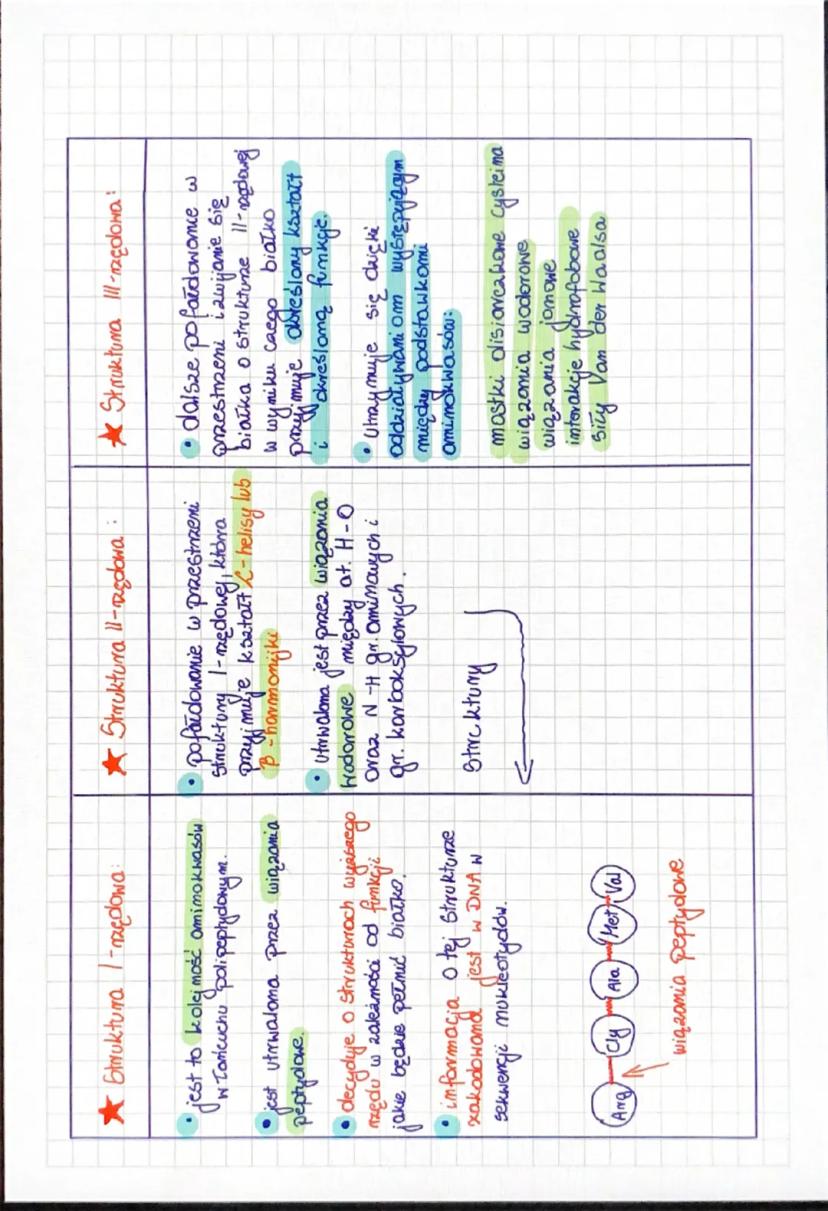 ★ Struktura I-rzędowa:
• jest to kolejność aminokwasów
w łańcuchu polipeptydowym.
• jest utrwalona przez wiązania
peptydowe.
• decyduje o strukturach wyższego
rzędu w zależności od funkcji
jakie będzie pełnić białko.
• informacja o tej strukturze
zakodowana jest w DNA w
sekwencji nukleotydów.
Arg Gly Ala Met Val
wiązania peptydowe
★ Struktura II-rzędowa:
• pofałdowanie w przestrzeni
struktury I-rzędowej, która
przyjmuje kształt α-helisy lub
β-harmonijki
• utrwalona jest przez wiązania
wodorowe między at. H-O
oraz N-H gr. aminowych i
gr. karboksylowych.
Struktury
★ Struktura III-rzędowa:
• dalsze pofałdowanie w
przestrzeni i zwijanie się
białka o strukturze II-rzędowej
w wyniku czego białko
przyjmuje określony kształt
i określoną funkcję.
• Utrzymuje się dzięki
oddziaływaniom występującym
między podstawkomi
aminokwasów:
mostki disiarczkowe cysteina
wiązania wodorowe
wiązania jonowe
interakcje hydrofobowe
siły Van der Waalsa